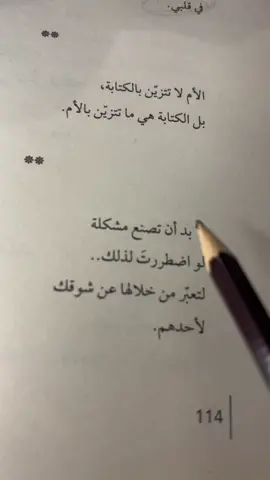 في قلبي.
**
الأم لا تتزيّن بالكتابة،
بل الكتابة هي ما تتزيّن بالأم.
**
بد أن تصنع مشكلة
لو اضطررتَ لذلك..
لتعبّر من خلالها عن شوقك
لأحدهم.
114